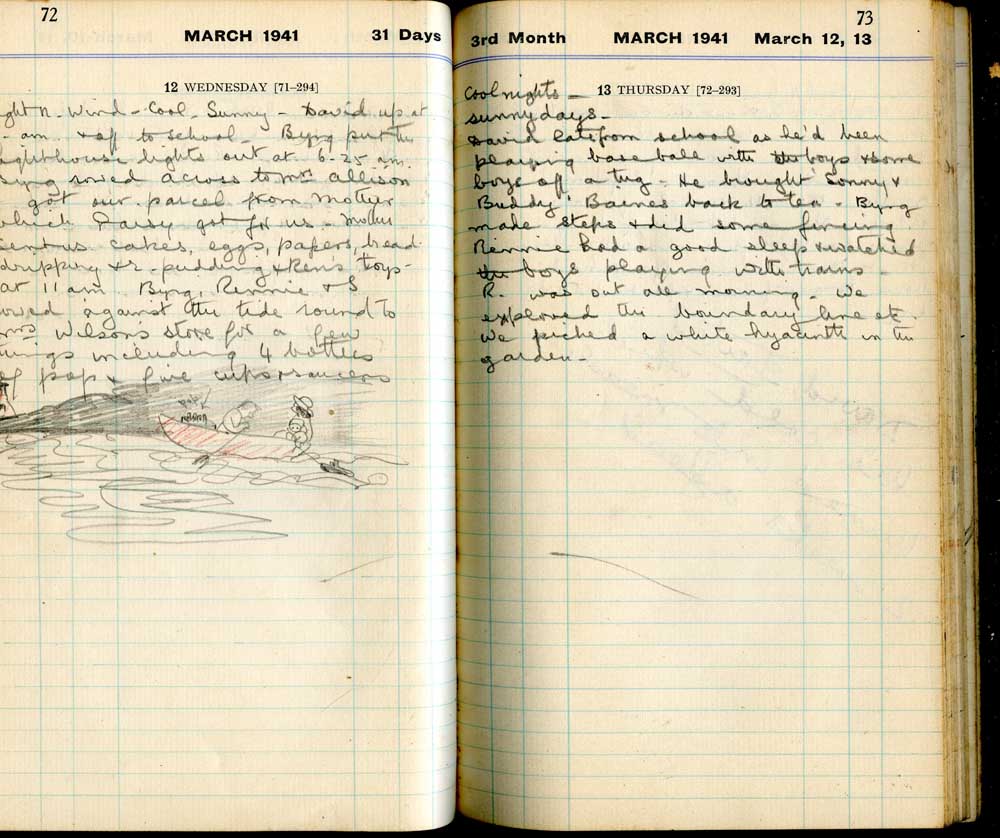 72
MARCH 1941 31 Days
12 WEDNESDAY [71–294]
ght N. Wind – Cool – Sunny – David up at
am. & off to school – Byng put the
lighthouse lights out at 6-25 am.
Byng rowed across to Mrs Allison
got our parcel from Mother
which Daisy got for us – Mother
sent us cakes, eggs, papers, bread
dripping & r. pudding & Ren's toys –
at 11 am. Byng, Rennie & I
rowed against the tide round to
Mrs Wilson's store for a few
things including 4 bottles
of pop & five cups & saucers
73
3rd Month MARCH 1941 March 12, 13
13 THURSDAY [72–293]
Cool nights –
sunny days –
David late from school as he'd been
playing base ball with the boys & some
boys off a tug – He brought Sonny &
"Buddy" Baines back to tea – Byng
made steps & did some fencing
Rennie had a good sleep & watched
the boys playing with trains –
R. was out all morning – We
explored the boundary line etc.
We picked a white hyacinth in the
garden –